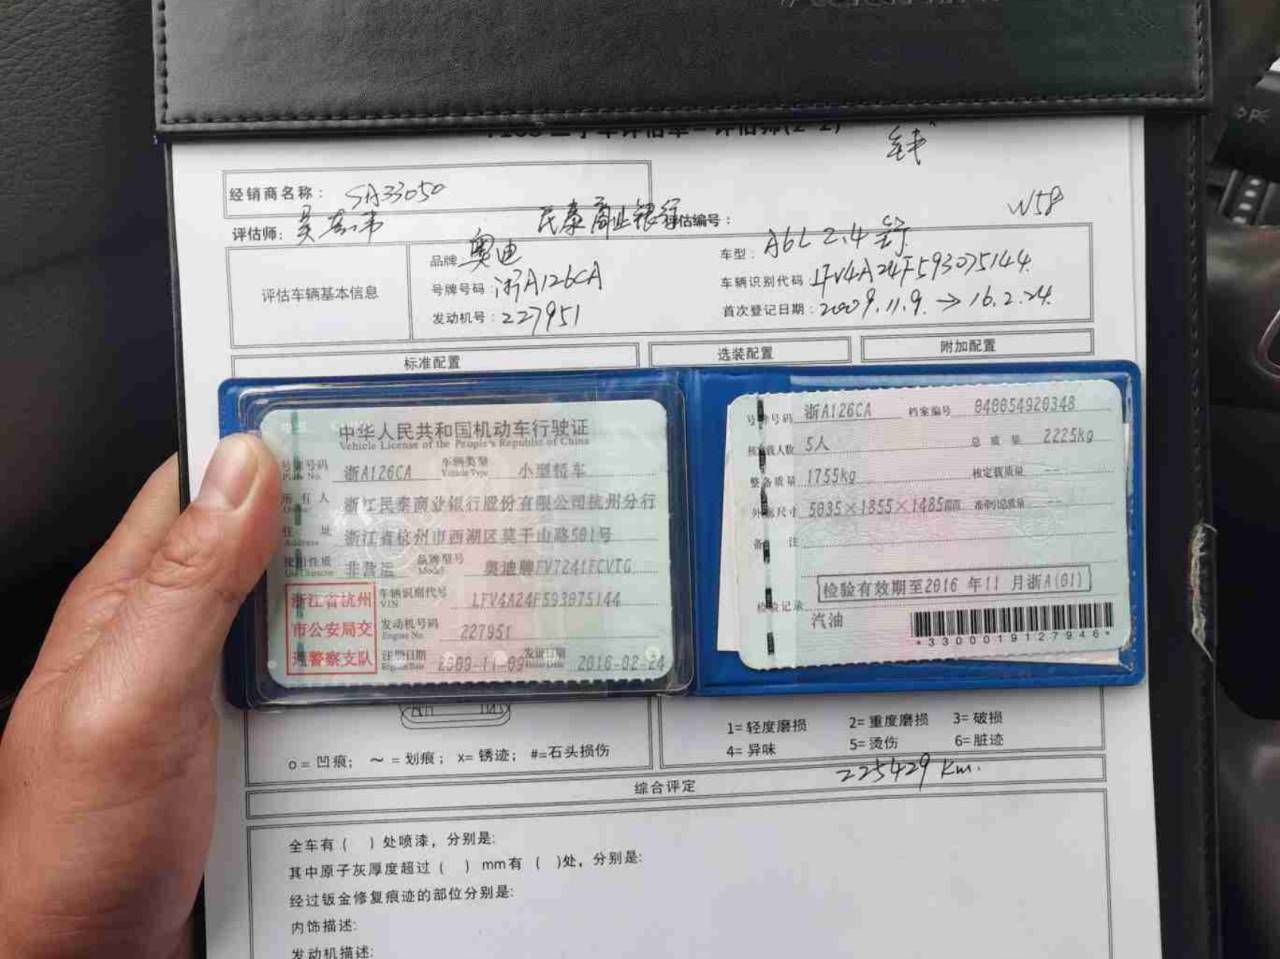 二手车评估单－评估师(2-2)
经销商名称： SA33050
评估师：
民泰商业银行
评估编号：
W58
评估车辆基本信息
品牌： 奥迪
车型： A6L 2.4
号牌号码： 浙A126CA
车辆识别代码： LFV4A24F593075144
发动机号： 227951
首次登记日期： 2009.11.9. → 16.2.24.
标准配置
选装配置
附加配置
中华人民共和国机动车行驶证
Vehicle License of the People's Republic of China
号牌号码 浙A126CA 车辆类型 小型轿车
Plate No. Vehicle Type
所有人 浙江民泰商业银行股份有限公司杭州分行
Owner
住址 浙江省杭州市西湖区莫干山路501号
Address
使用性质 非营运 品牌型号 奥迪牌FV7241FCVTG
Use Character Model
浙江省杭州
市公安局交
通警察支队
车辆识别代号 LFV4A24F593075144
VIN
发动机号码 227951
Engine No.
注册日期 2009-11-09 发证日期 2016-02-24
Register Date Issue Date
号牌号码 浙A126CA 档案编号 040054920348
核定载人数 5人 总质量 2225kg
整备质量 1755kg 核定载质量 --
外廓尺寸 5035×1855×1485mm 准牵引总质量 --
备注
检验有效期至2016 年11 月浙A(01)
检验记录
汽油
*3300019127946*
o = 凹痕； ～ = 划痕； x= 锈迹； #=石头损伤
1= 轻度磨损 2= 重度磨损 3= 破损
4= 异味 5= 烫伤 6= 脏迹
综合评定
225429 Km.
全车有（ ）处喷漆，分别是:
其中原子灰厚度超过（ ）mm有（ )处，分别是:
经过钣金修复痕迹的部位分别是:
内饰描述:
发动机描述: